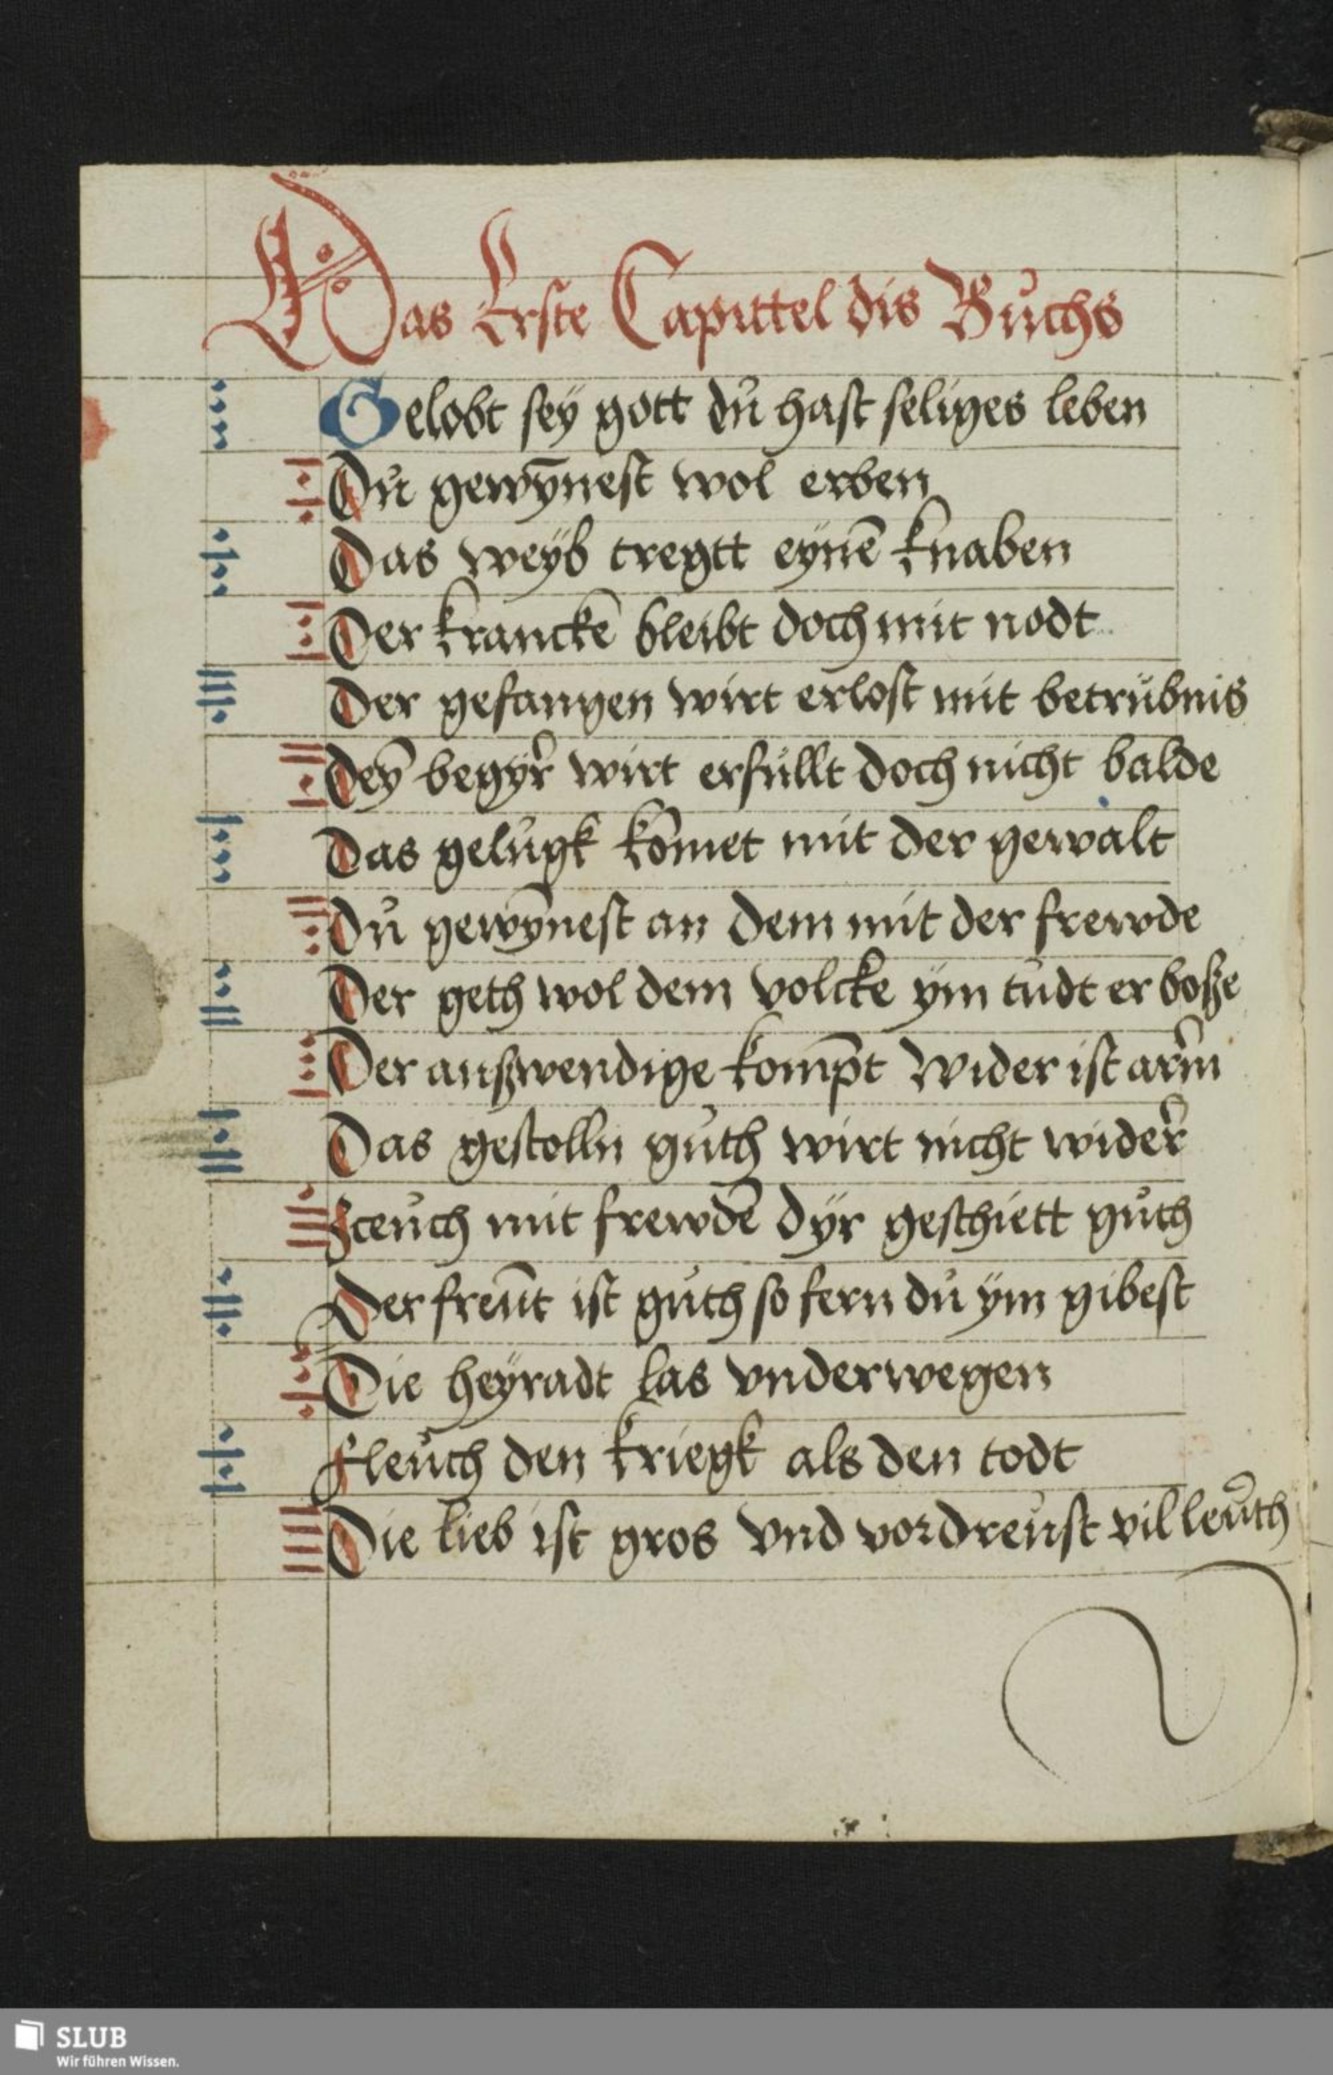 Das Erste Capittel dis Bůchs
Gelobt sey gott dů hast seliges leben
Dů gewȳnest wol erben
Das weyb tregtt eynē knaben
Der kranckē bleibt doch mit nodt
Der gefangen wirt erlost mit betrůbnis
Deȳ begyr wirt erfůllt doch nicht balde
Das gelůgk kōmet mit der gewalt
Dů gewȳnest an dem mit der frewde
Der geth wol dem volcke ym tůdt er boße
Der außwendige komp̄t wider ist arm
Das gestolln gůth wirt nicht wider
Zceůch mit frewdē dyr geschiett gůth
Der freūt ist gůth so fern dů ym gibest
Die heyradt las vnderwegen
Fleůch den kriegk als den todt
Die lieb ist gros vnd vordreůst vil leůth
SLUB
Wir führen Wissen.